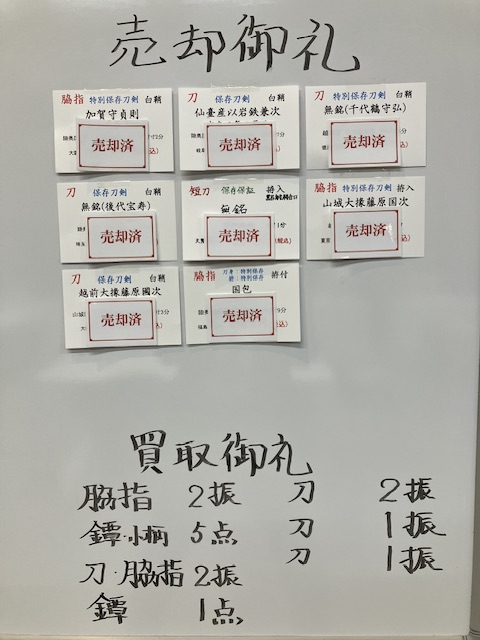 売却御礼
脇指 特別保存刀剣 白鞘
加賀守貞則
売却済
刀 保存刀剣 白鞘
仙臺産以岩鉄兼次
売却済
刀 特別保存刀剣 白鞘
無銘(千代鶴守弘)
売却済
刀 保存刀剣 白鞘
無銘(後代宝寿)
売却済
短刀 保存保証 拵入
無銘
売却済
脇指 特別保存刀剣 拵入
山城大掾藤原国次
売却済
刀 保存刀剣 白鞘
越前大掾藤原國次
売却済
脇指 刀身:特別保存 拵付
拵:特別保存
国包
売却済
買取御礼
脇指 2振 刀 2振
鐔・小柄 5点 刀 1振
刀・脇指 2振 刀 1振
鐔 1点